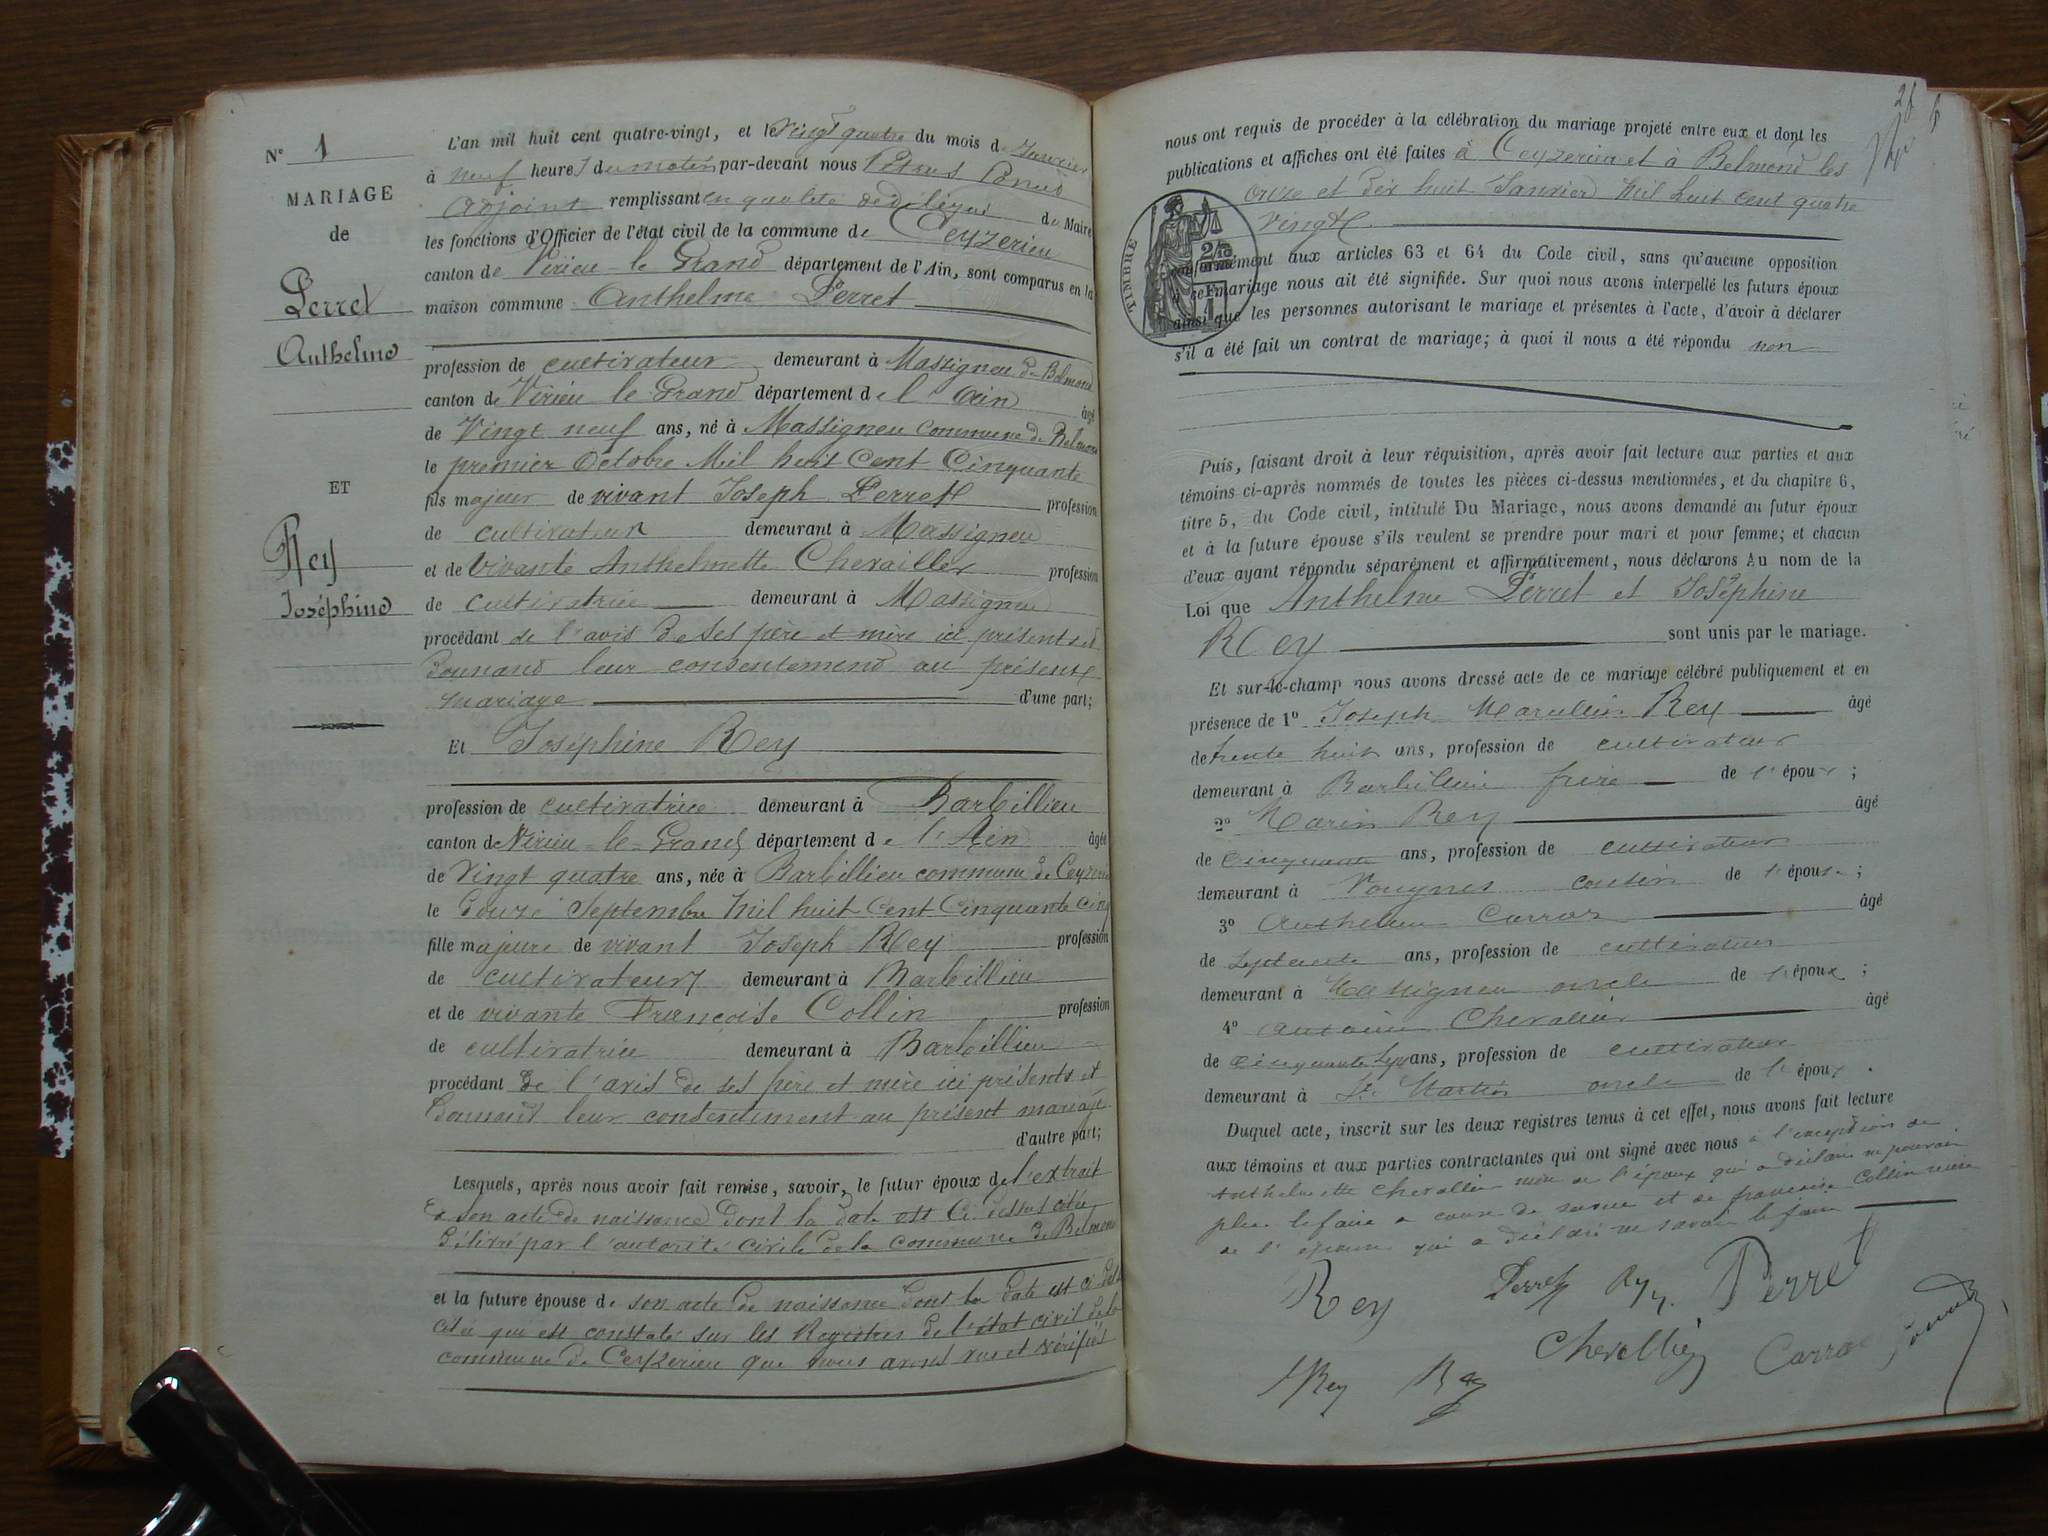 Nº 1
MARIAGE
de
Perret
Anthelme
ET
Rey
Joséphine
L'an mil huit cent quatre-vingt, et le Vingt quatre du mois de Janvier
à neuf heures du matin par-devant nous
Adjoint remplissant en qualité de délégué du Maire
les fonctions d'Officier de l'état civil de la commune de Ceyzerieu
canton de Virieu-le Grand département de l'Ain, sont comparus en la
maison commune Anthelme Perret
profession de cultivateur demeurant à Massigneu de Belmond
canton de Virieu le Grand département de l'Ain âgé
de Vingt neuf ans, né à Massigneu commune de Belmond
le premier Octobre Mil huit Cent Cinquante
fils majeur de vivant Joseph Perret profession
de cultivateur demeurant à Massigneu
et de vivante Anthelmette Chevallier profession
de cultivatrice demeurant à Massigneu
procédant de l'avis de ses père et mère ici présents et
donnand leur consentement au présent
mariage d'une part;
Et Joséphine Rey
profession de cultivatrice demeurant à Barbillieu
canton de Virieu-le-Grand département de l'Ain âgée
de Vingt quatre ans, née à Barbillieu commune de Ceyzerieu
le Douze Septembre Mil huit Cent Cinquante cinq
fille majeure de vivant Joseph Rey profession
de cultivateur demeurant à Barbillieu
et de vivante Françoise Collin profession
de cultivatrice demeurant à Barbillieu
procédant de l'avis de ses père et mère ici présents et
donnand leur consentement au présent mariage
d'autre part;
Lesquels, après nous avoir fait remise, savoir, le futur époux de l'extrait
de son acte de naissance dont la date est Ci dessus citée
Délivré par l'autorité civile de la commune de Belmond
et la future épouse de son acte de naissance dont la date est ci-dessus
citée qui est constaté sur les Registres de l'état civil de la
commune de Ceyzerieu que nous avons vus et vérifiés
nous ont requis de procéder à la célébration du mariage projeté entre eux et dont les
publications et affiches ont été faites à Ceyzerieu et à Belmond les
onze et dix huit Janvier Mil huit cent quatre
vingt.
TIMBRE
2/10
conformément aux articles 63 et 64 du Code civil, sans qu'aucune opposition
à ce mariage nous ait été signifiée. Sur quoi nous avons interpellé les futurs époux
ainsi que les personnes autorisant le mariage et présentes à l'acte, d'avoir à déclarer
s'il a été fait un contrat de mariage; à quoi il nous a été répondu non
Puis, faisant droit à leur réquisition, après avoir fait lecture aux parties et aux
témoins ci-après nommés de toutes les pièces ci-dessus mentionnées, et du chapitre 6,
titre 5, du Code civil, intitulé Du Mariage, nous avons demandé au futur époux
et à la future épouse s'ils veulent se prendre pour mari et pour femme; et chacun
d'eux ayant répondu séparément et affirmativement, nous déclarons Au nom de la
Loi que Anthelme Perret et Joséphine
Rey sont unis par le mariage.
Et sur-le-champ nous avons dressé acte de ce mariage célébré publiquement et en
présence de 1º Joseph Marcellin Rey âgé
de trente huit ans, profession de cultivateur
demeurant à Barbillieu frère de l'épouse;
2º Marin Rey âgé
de cinquante ans, profession de cultivateur
demeurant à Vongnes cousin de l'épouse;
3º Anthelme Carraz âgé
de septante ans, profession de cultivateur
demeurant à Massigneu oncle de l'époux;
4º Antoine Chevalier âgé
de cinquante sept ans, profession de cultivateur
demeurant à St. Martin oncle de l'époux.
Duquel acte, inscrit sur les deux registres tenus à cet effet, nous avons fait lecture
aux témoins et aux parties contractantes qui ont signé avec nous à l'exception de
Anthelmette Chevallier mère de l'époux qui a déclaré ne pouvoir
plus le faire a cause de et de françoise Collin mère
de l'épouse qui a déclaré ne savoir le faire
Rey Perret Rey Perret
Chevallier Carraz
Rey Rey